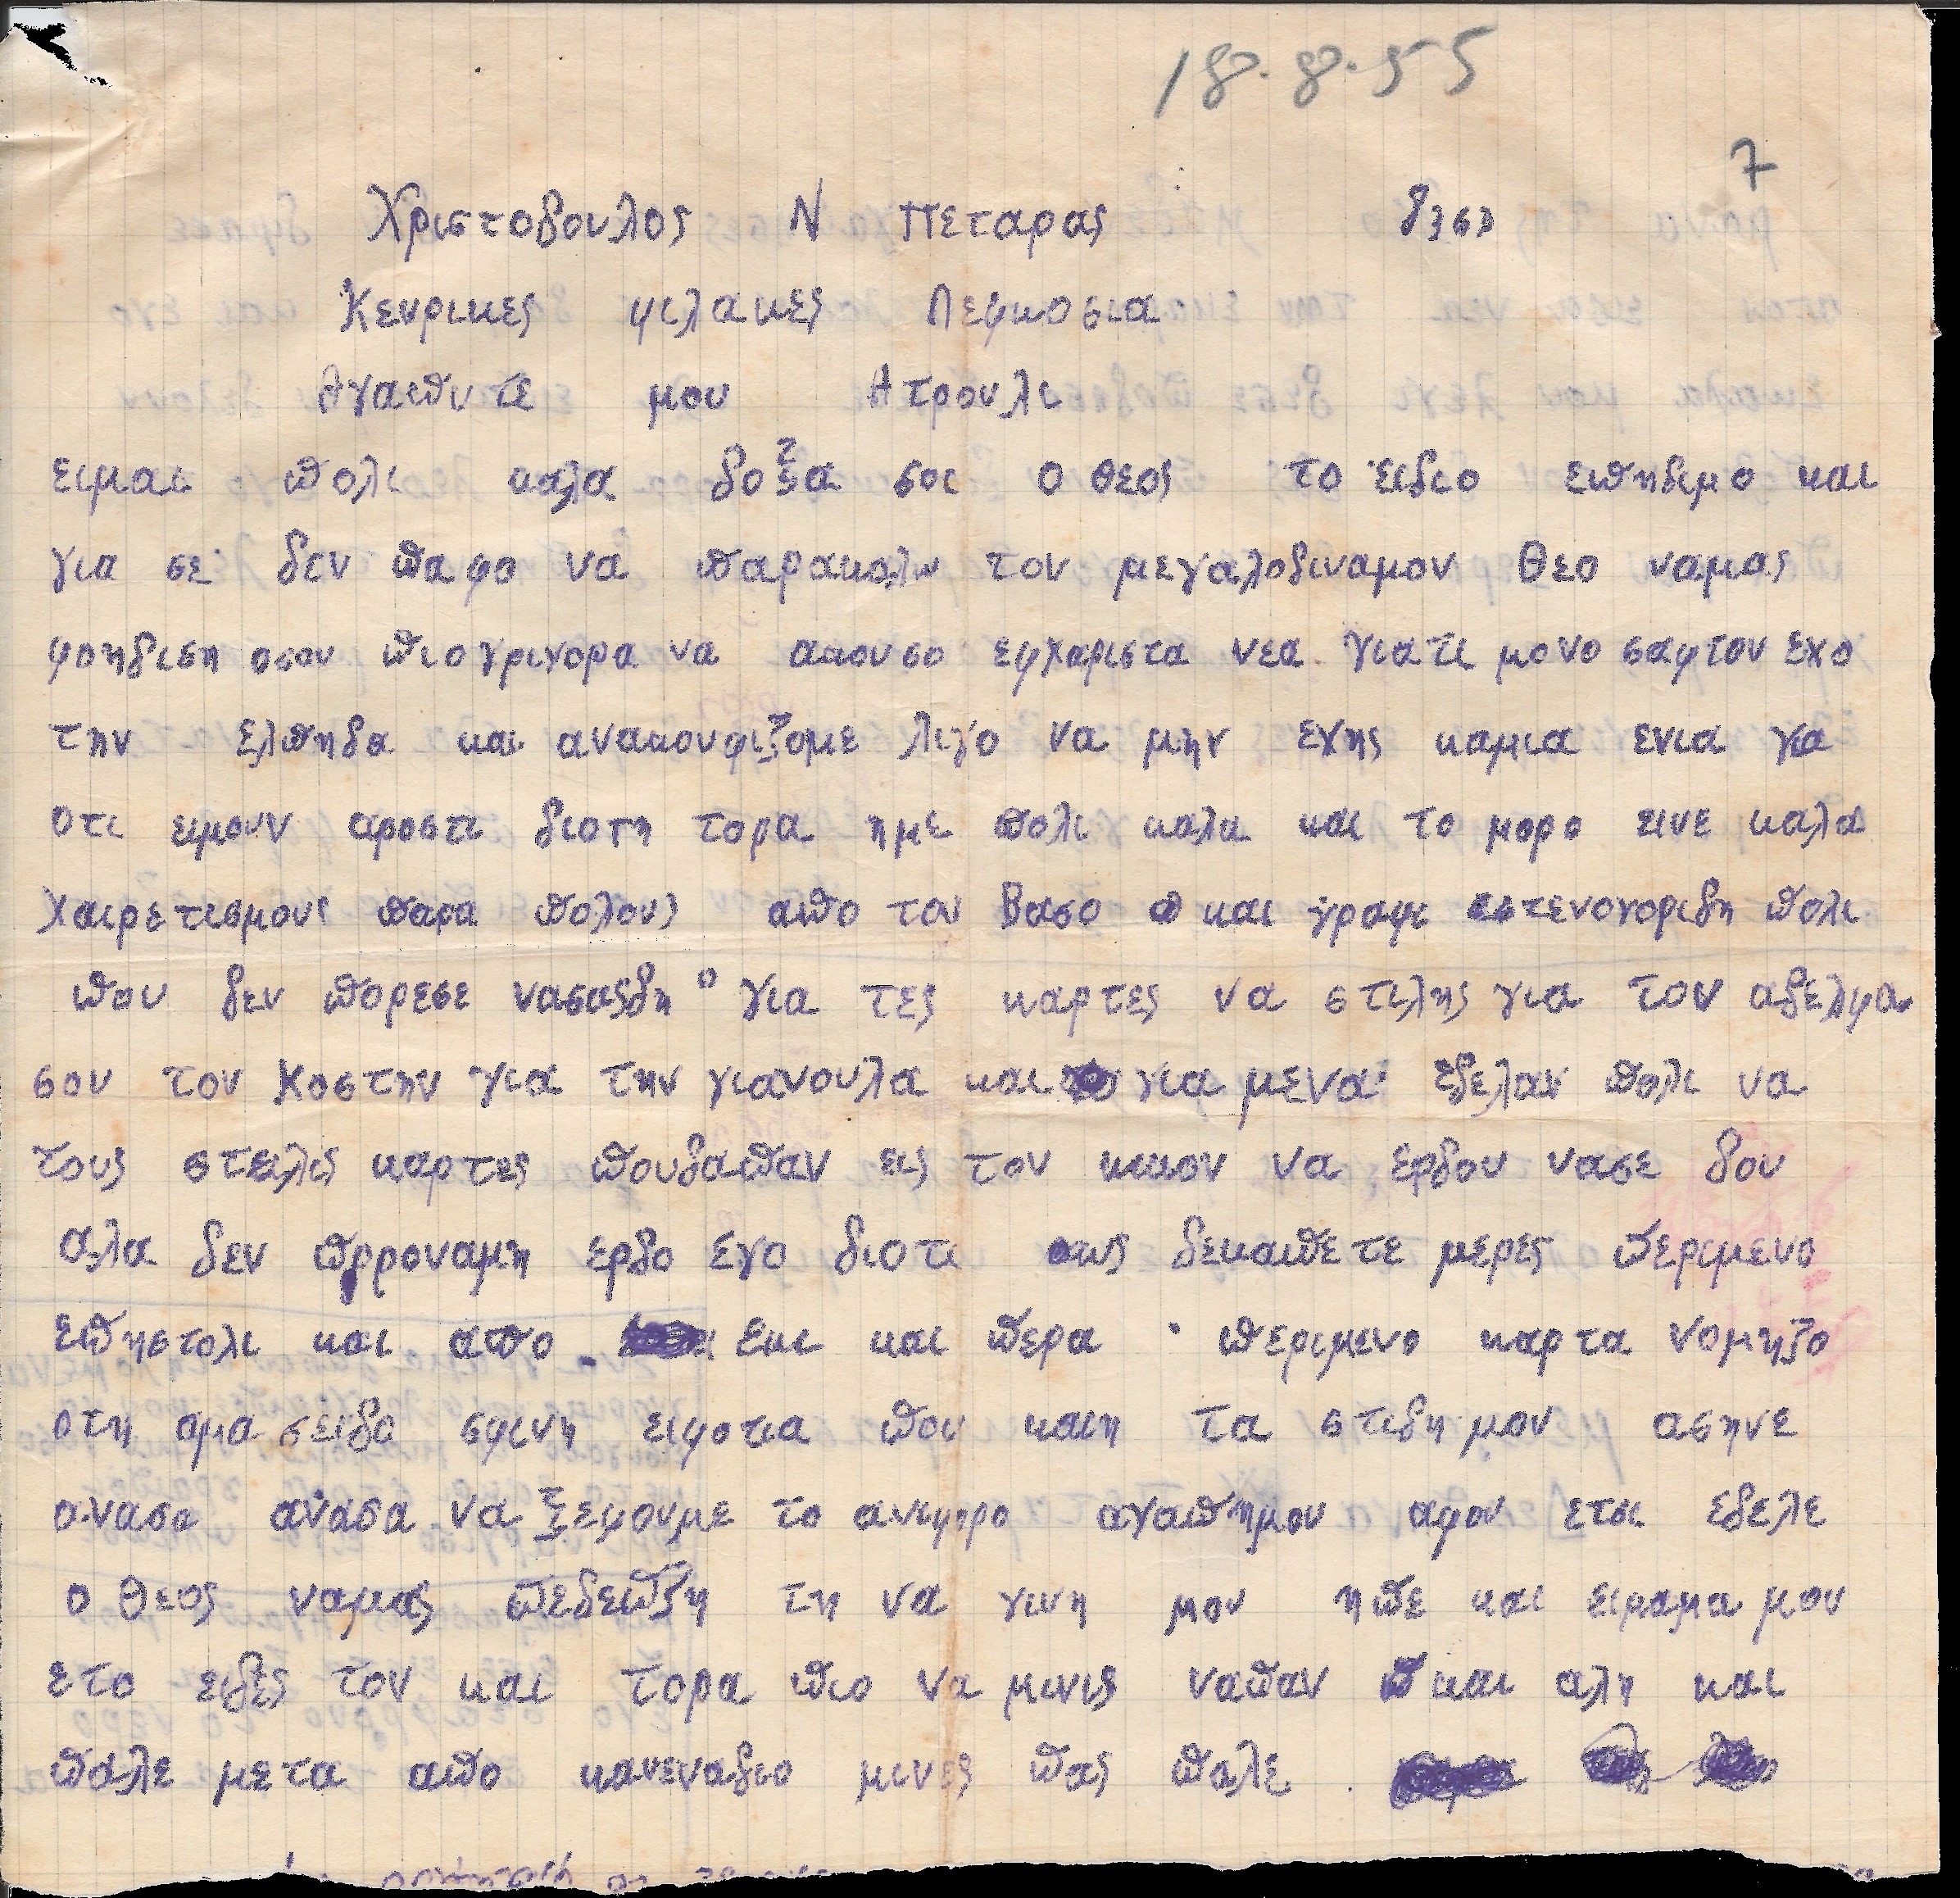 18.8.55
7
Χριστοδουλος Ν Πεταρας
Κενρικες φιλακες Λεφκοσια
Αγαπιτε μου Ατρουλι
ειμαι πολι καλα δοξα σοι ο θεος το ειδιο επηδιμο και
για σε δεν παφο να παρακαλω τον μεγαλοδιναμον θεο ναμας
φοηδιση οσον πιο γριγορα να ακουσο εφχαριστα νεα γιατι μονο σαφτον εχο
την ελπηδα και ανακουφιζομε λιγο να μην εχης καμια ενια για
οτι ειμουν αροστι διοτη τορα ημε πολι καλα και το μορο εινε καλα
χαιρετισμους παρα πολους απο τον Βασο και γραφι στενογοριδη πολι
που δεν πορεσε νασασδη για τες καρτες να στιλης για τον αδελφο
σου τον Κοστην για την γιανουλα και για μενα εδελαν πολι να
τους στειλις καρτες πουδαπαν εις τον κικον να ερδουν νασε δου
αλα δεν πρρουναμη ερδο εγο διοτι ος δεκαπετε μερες περιμενο
επηστολι και απο εκι και περα περιμενο καρτα νομηζο
οτη αμα σειδο σφινη ειφοτια που καιη τα στιδη μου ασηνε
ανασα ανασα να ξεφουμε το ανιφηρο αγαπημου αφου ετσι εδελε
ο θεος ναμας πεδεψη τη να γινη μου ηπε και ειμαμα μου
ετο ειδες τον και τορα πιο να μινις ναπαν και αλη και
παλε μετα απο κανεναδιο μινες πας παλε